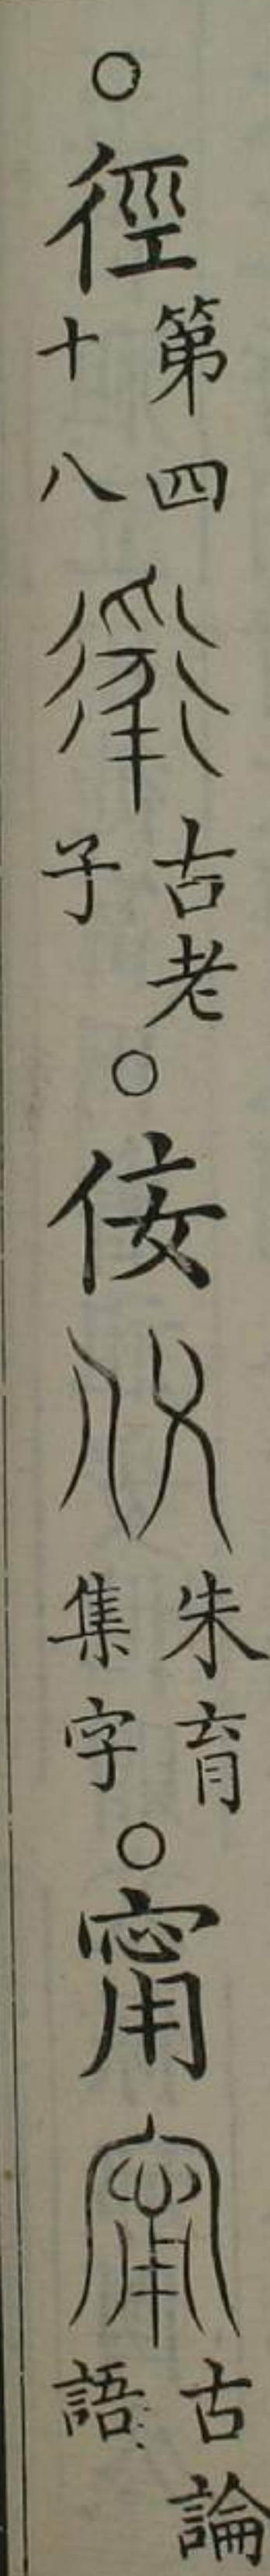 ○徑第四十八古老子○佞朱育集字○甯古論語